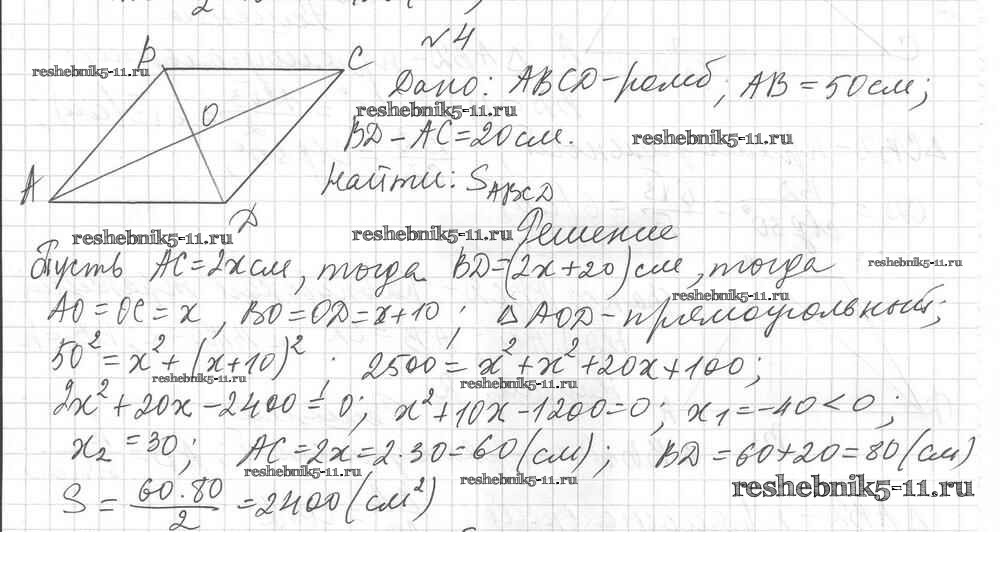 №4
B
C
reshebnik5-11.ru
Дано: ABCD - ромб; AB = 50 см;
O
reshebnik5-11.ru
BD - AC = 20 см.
reshebnik5-11.ru
A
Найти: S_ABCD
D
reshebnik5-11.ru
reshebnik5-11.ru
Решение
Пусть AC = 2x см, тогда BD = (2x + 20) см, тогда
reshebnik5-11.ru
reshebnik5-11.ru
AO = OC = x, BO = OD = x + 10; △ AOD - прямоугольный;
50² = x² + (x + 10)²; 2500 = x² + x² + 20x + 100;
reshebnik5-11.ru
reshebnik5-11.ru
2x² + 20x - 2400 = 0; x² + 10x - 1200 = 0; x₁ = -40 < 0;
x₂ = 30; AC = 2x = 2·30 = 60 (см); BD = 60 + 20 = 80 (см)
reshebnik5-11.ru
reshebnik5-11.ru
reshebnik5-11.ru
S = 60·80/2 = 2400 (см²)